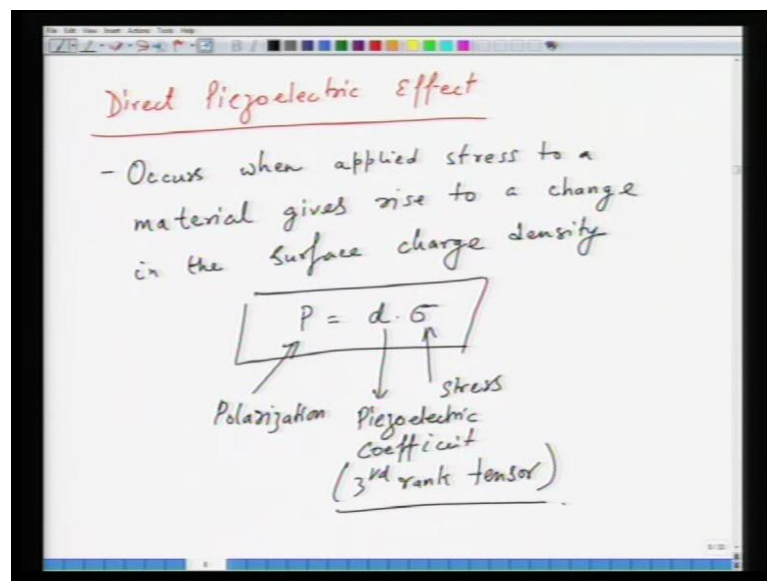 File Edit View Insert Actions Tools Help
Direct Piezoelectric Effect
- Occurs when applied stress to a
material gives rise to a change
in the surface charge density
P = d . σ
Stress
Polarization Piezoelectric
Coefficient
(3rd rank tensor)